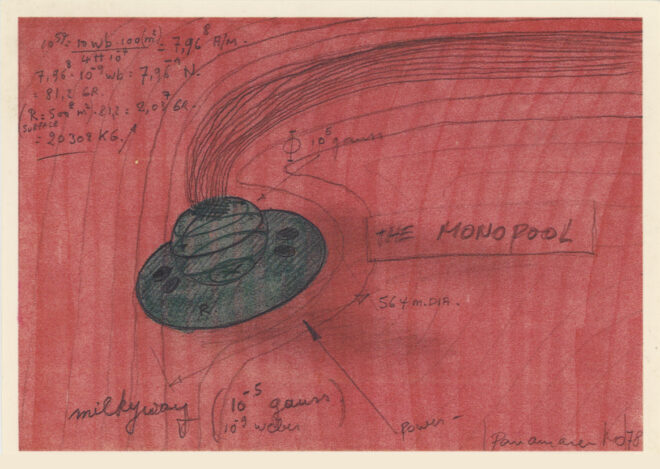 10⁵g = 10 wb · 100(m²) = 7,96⁸ A/M.
4π 10⁻⁷
7,96⁸ · 10⁻⁹ wb = 7,96⁻¹ N.
= 81,2 GR.
R = 500² m² · 81,2 = 2,03⁷ GR.
SURFACE
= 20308 KG.
Φ 10⁵ gauss
THE MONOPOOL
564 m. DIA.
R
milkyway
(10⁻⁵ gauss)
10⁻⁹ weber
power –
Panamarenko 78